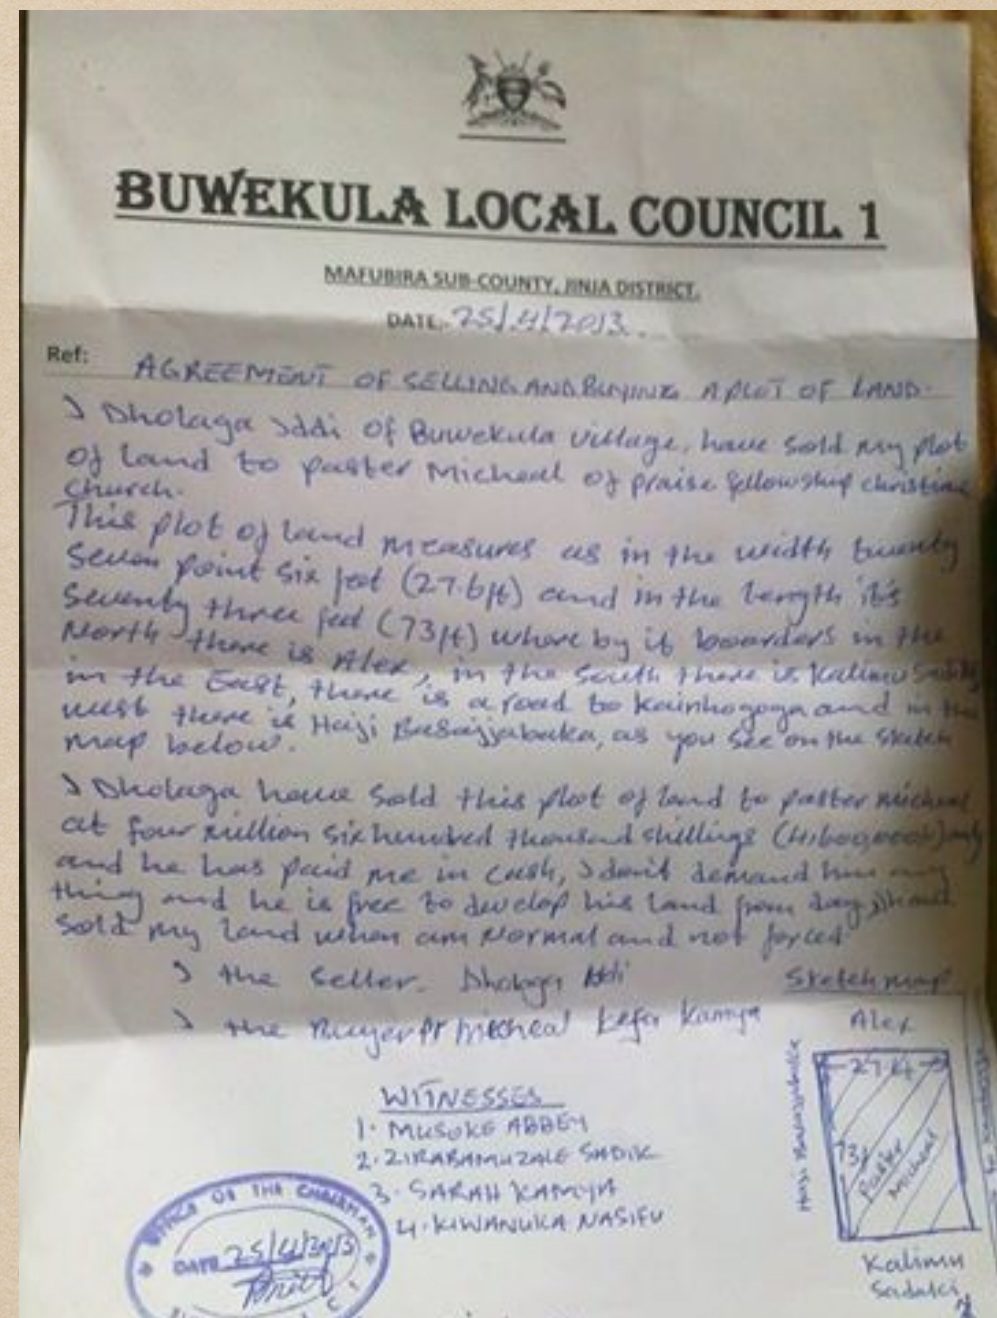 BUWEKULA LOCAL COUNCIL 1
MAFUBIRA SUB-COUNTY, JINJA DISTRICT.
DATE:- 25/4/2013
Ref: AGREEMENT OF SELLING AND BUYING A PLOT OF LAND.
I Dholaga Iddi of Buwekula village, have sold my plot
of land to paster Micheal of praise fellowship christian
church.
This plot of land measures as in the width twenty
seven point six feet (27.6ft) and in the length its
seventy three feet (73ft) where by it boarders in the
North there is Alex, in the South there is Kalimu
in the East, there is a road to Kainhogoga and in the
west there is Haji Basajjabaka, as you see on the sketch
map below.
I Dholaga have sold this plot of land to paster micheal
at four million six hundred thousand shillings (4,600,000) only
and he has paid me in cash, I don't demand him any
thing and he is free to develop his land from day
sold my land when am Normal and not forced
I the seller. Dholaga
I the Buyer Pr Micheal Kefa Kamya
Sketch map
Alex
Haji
27.6
73
Paster
Micheal
Kalimu
Sadaki
WITNESSES
1. MUSOKE ABBEY
2. ZIRABAMUZALE SADIK
3. SARAH KAMYA
4. KIWANUKA NASIFU
OFFICE OF THE CHAIRMAN
DATE 25/4/2013